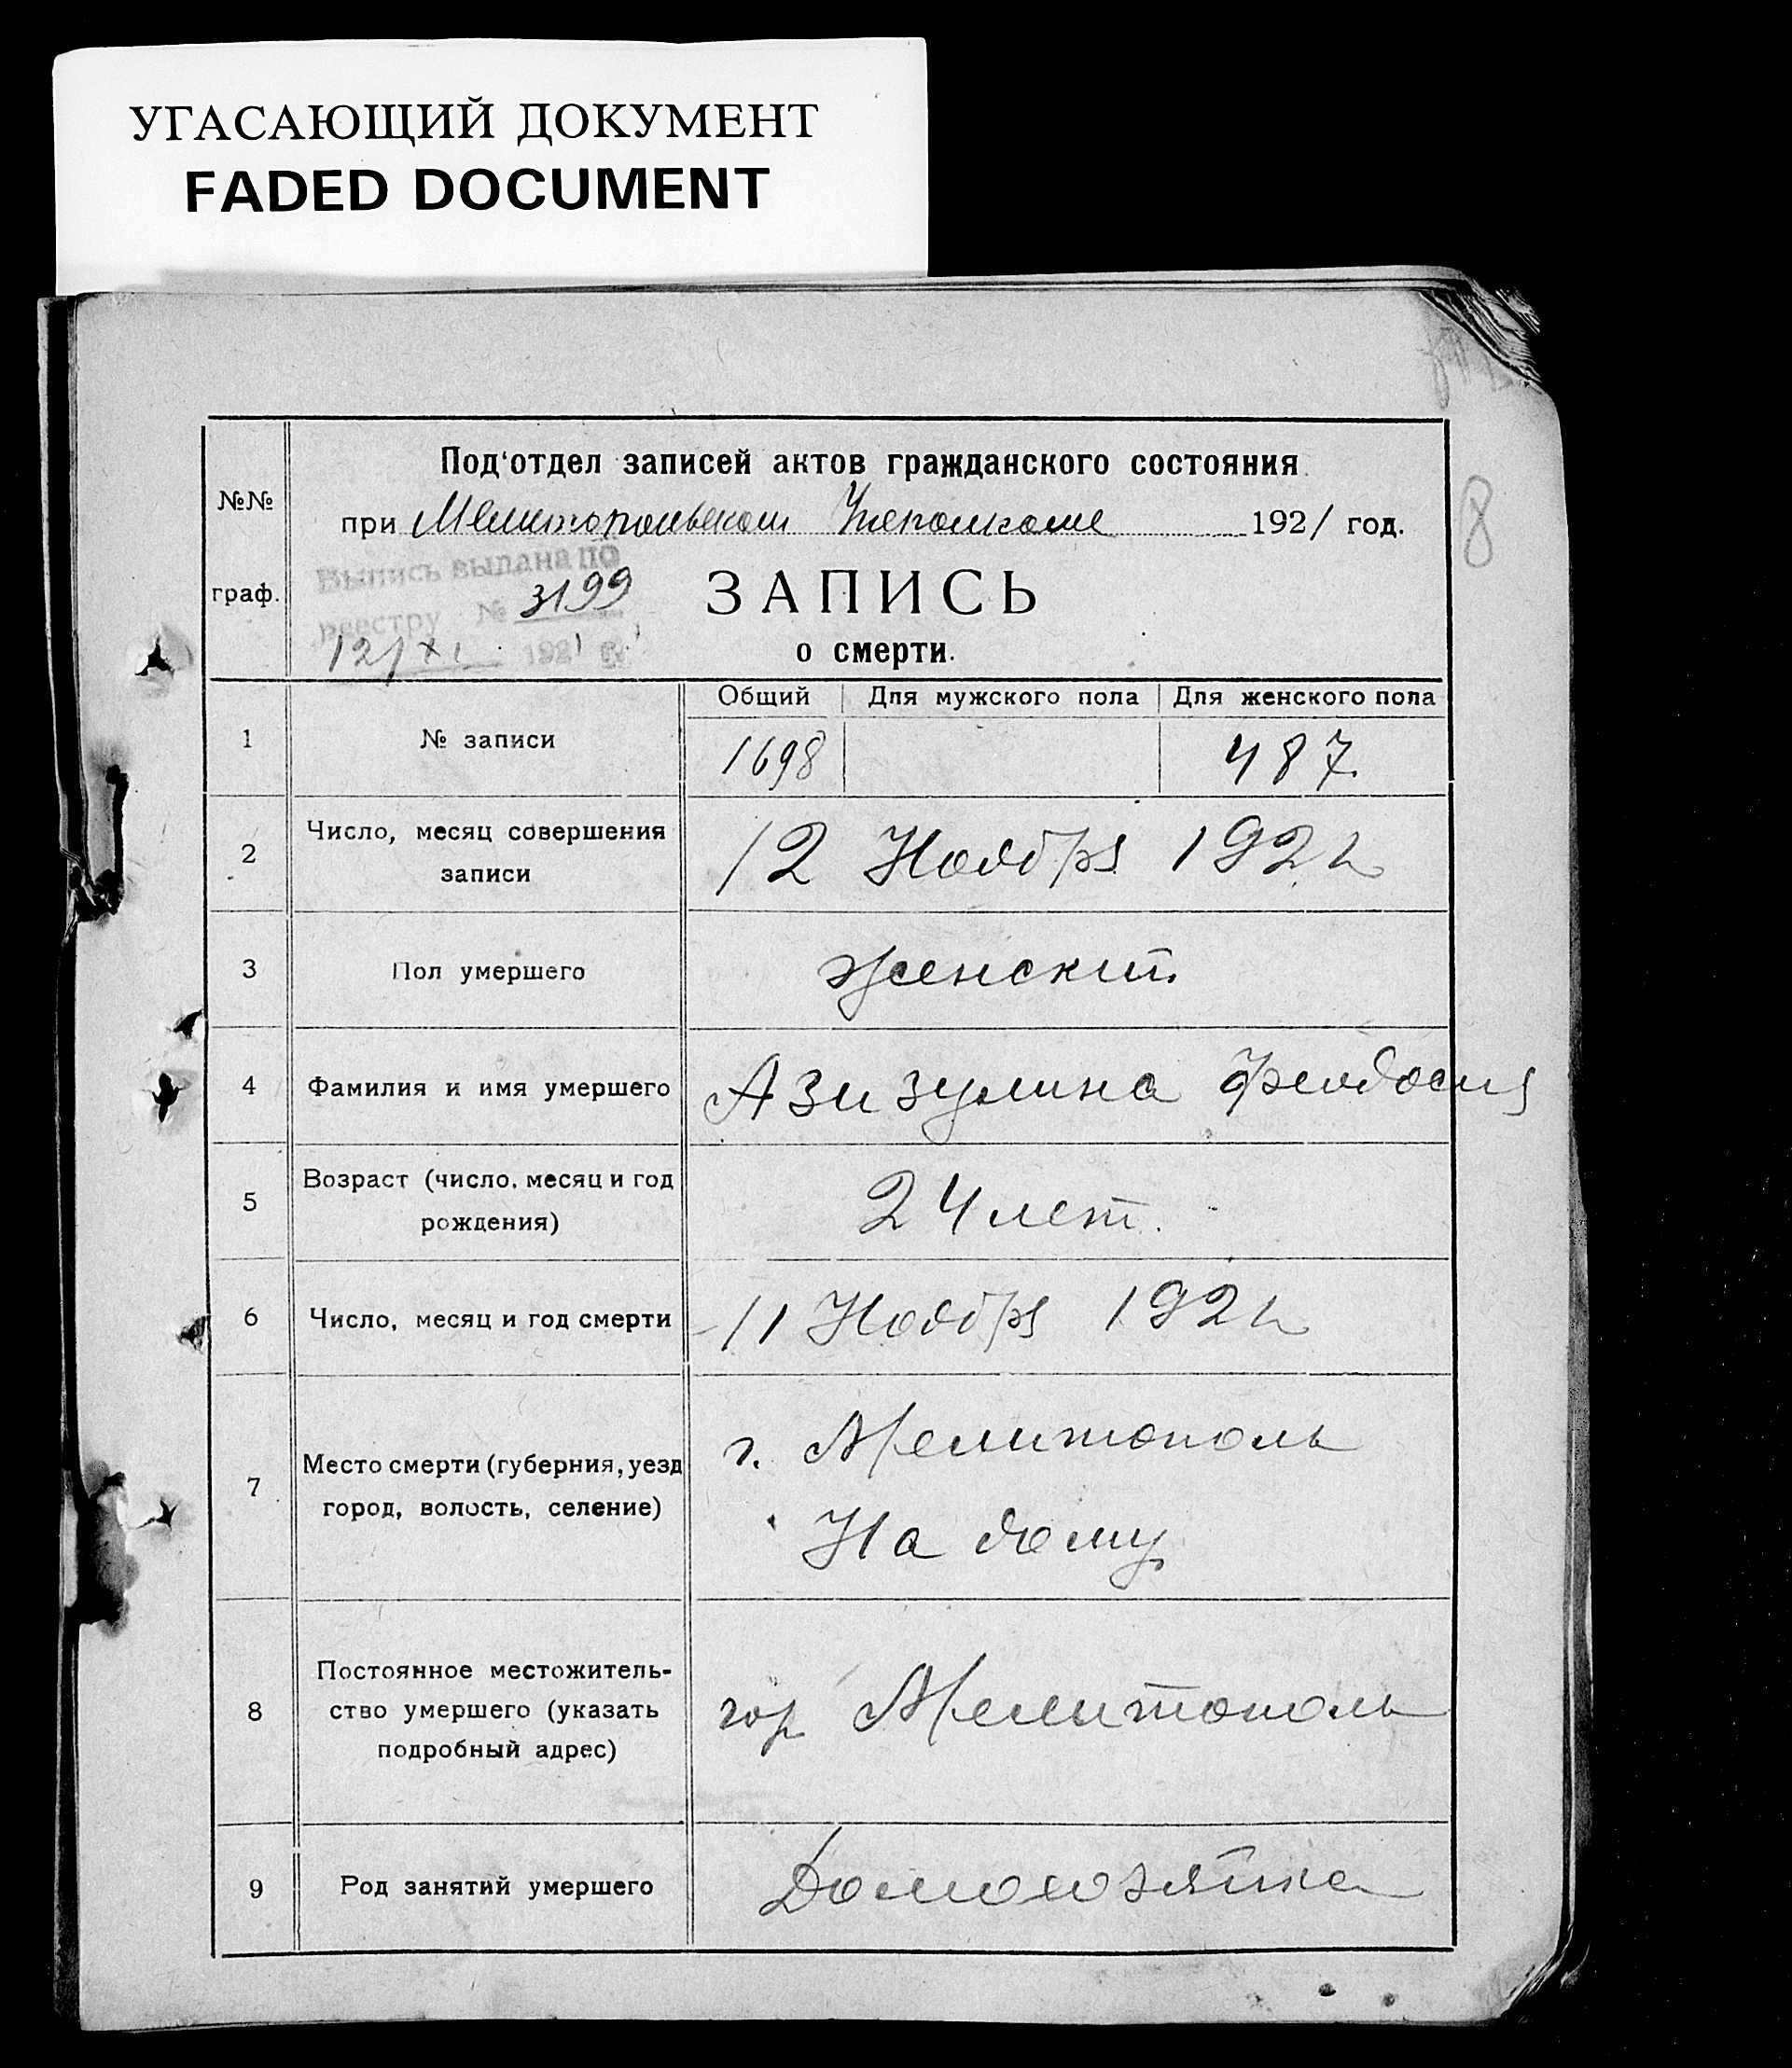 УГАСАЮЩИЙ ДОКУМЕНТ
FADED DOCUMENT
8
№№
граф.
Под'отдел записей актов гражданского состояния
при Мелитопольском Уисполкоме 1921 год.
Выпись выдана по
реестру № 3199
12/XI 1921 г.
ЗАПИСЬ
о смерти.
Общий Для мужского пола Для женского пола
1 № записи 1698 487
2 Число, месяц совершения
записи
12 Ноября 1921
3 Пол умершего женский
4 Фамилия и имя умершего Азизулина Феодосия
5 Возраст (число, месяц и год
рождения)
24 лет.
6 Число, месяц и год смерти 11 Ноября 1921
7 Место смерти (губерния, уезд
город, волость, селение)
г. Мелитополь
На дому
8 Постоянное местожитель-
ство умершего (указать
подробный адрес)
гор Мелитополь
9 Род занятий умершего Домохозяйка